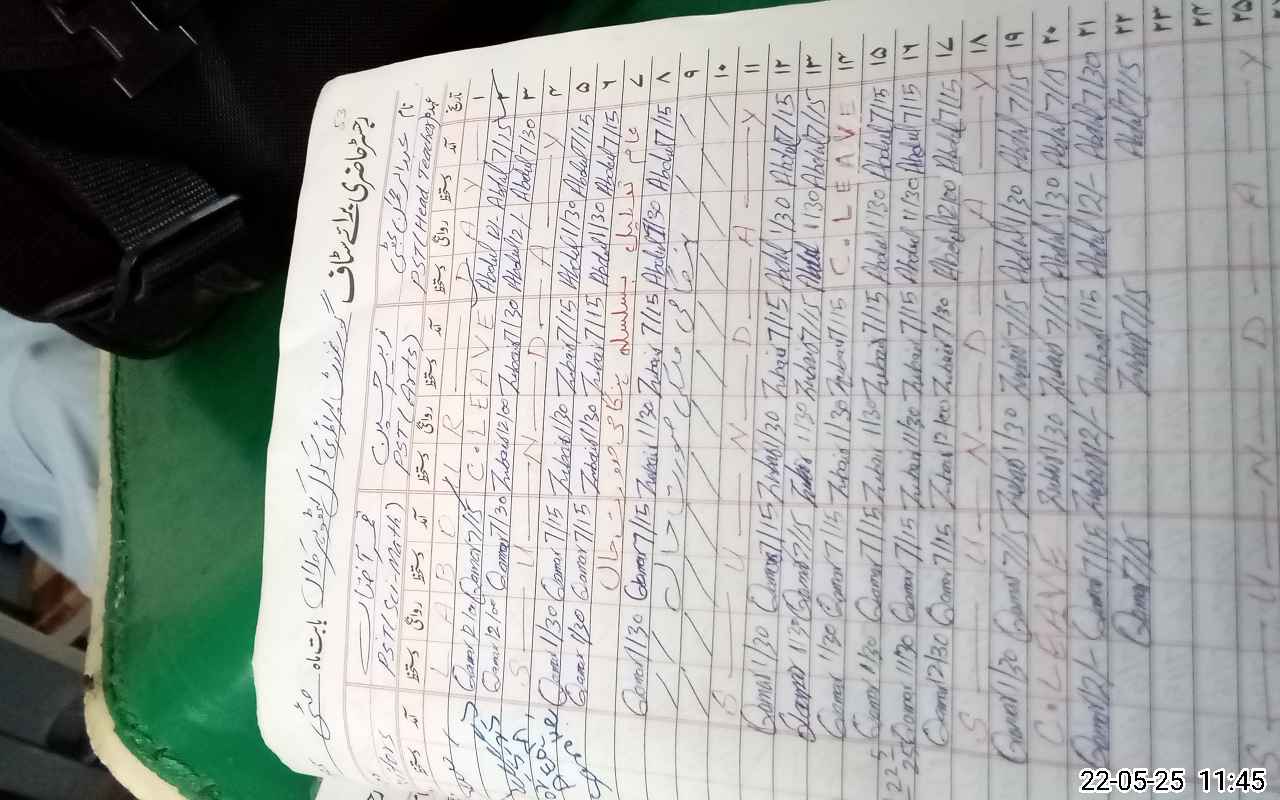 53
رجسٹر حاضری برائے سٹاف
گورنمنٹ بابت ماہ مئی
نام عبدالرحمٰن
PST(Sci Math) PST(Arts) PST(Head Teacher) عہدہ
دستخط روانگی دستخط آمد دستخط روانگی دستخط آمد دستخط روانگی دستخط آمد تاریخ
L A B O U R D A Y ۱
Qamar 12/00 Qamar 7/15 C. LEAVE Abdul 12/- Abdul 7/15 ۲
Qamar 12/00 Qamar 7/30 Zubair 12/00 Zubair 7/30 Abdul 12/- Abdul 7/30 ۳
S U N D A Y ۴
Qamar 1/30 Qamar 7/15 Zubair 1/30 Zubair 7/15 Abdul 1/30 Abdul 7/15 ۵
Qamar 1/30 Qamar 7/15 Zubair 1/30 Zubair 7/15 Abdul 1/30 Abdul 7/15 ۶
عام تعطیل بسلسلہ ہنگامی صورت حال ۷
Qamar 1/30 Qamar 7/15 Zubair 1/30 Zubair 7/15 Abdul 1/30 Abdul 7/15 ۸
ہنگامی ملکی صورت حال ۹
۱۰
S U N D A Y ۱۱
Qamar 1/30 Qamar 7/15 Zubair 1/30 Zubair 7/15 Abdul 1/30 Abdul 7/15 ۱۲
Qamar 1/30 Qamar 7/15 Zubair 1/30 Zubair 7/15 Abdul 1/30 Abdul 7/15 ۱۳
Qamar 1/30 Qamar 7/15 Zubair 1/30 Zubair 7/15 C. LEAVE ۱۴
Qamar 1/30 Qamar 7/15 Zubair 1/30 Zubair 7/15 Abdul 1/30 Abdul 7/15 ۱۵
Qamar 11/30 Qamar 7/15 Zubair 11/30 Zubair 7/15 Abdul 11/30 Abdul 7/15 ۱۶
Qamar 12/30 Qamar 7/15 Zubair 12/00 Zubair 7/30 Abdul 12/00 Abdul 7/15 ۱۷
S U N D A Y ۱۸
Qamar 1/30 Qamar 7/15 Zubair 1/30 Zubair 7/15 Abdul 1/30 Abdul 7/15 ۱۹
C. LEAVE Zubair 1/30 Zubair 7/15 Abdul 1/30 Abdul 7/15 ۲۰
Qamar 12/- Qamar 7/15 Zubair 12/- Zubair 7/15 Abdul 12/- Abdul 7/30 ۲۱
Qamar 7/15 Zubair 7/15 Abdul 7/15 ۲۲
۲۳
۲۴
S U N D A Y ۲۵
22-05-25 11:45